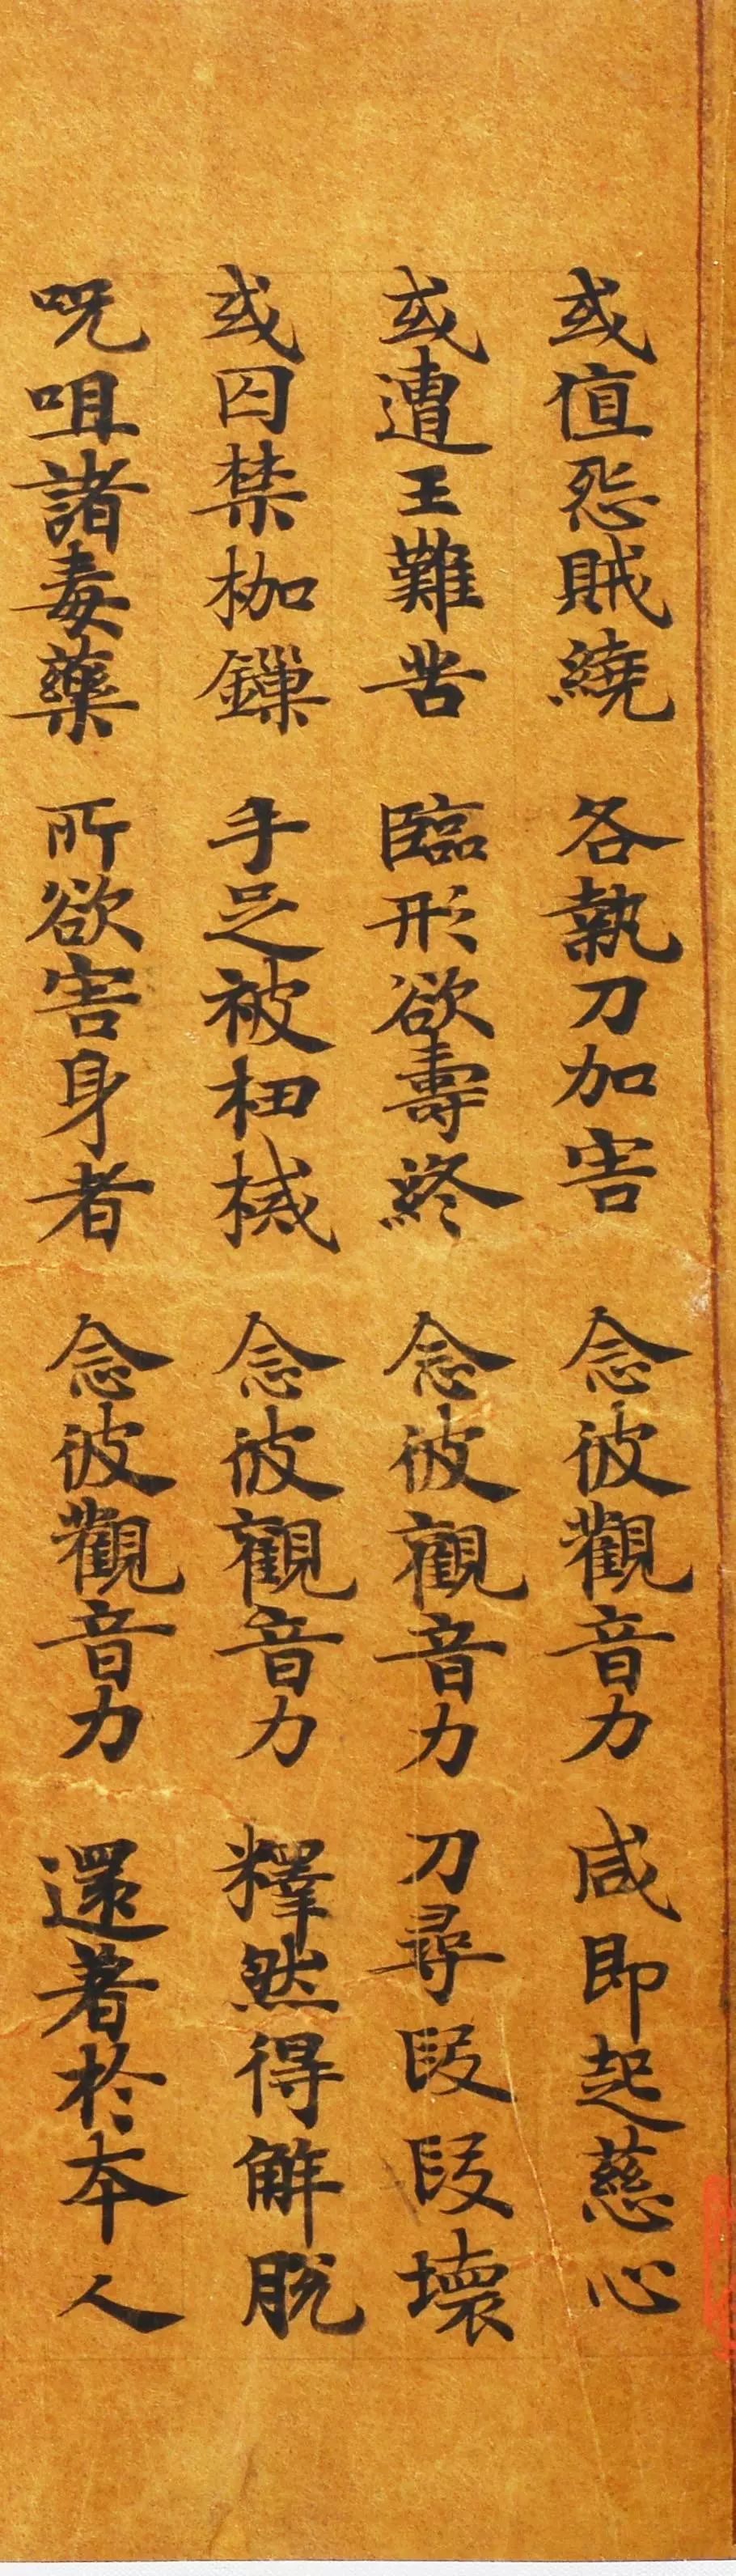 或值怨賊繞 各執刀加害 念彼觀音力 咸即起慈心
或遭王難苦 臨形欲壽終 念彼觀音力 刀尋段段壞
或囚禁枷鏁 手足被杻械 念彼觀音力 釋然得解脫
呪咀諸毒藥 所欲害身者 念彼觀音力 還著於本人